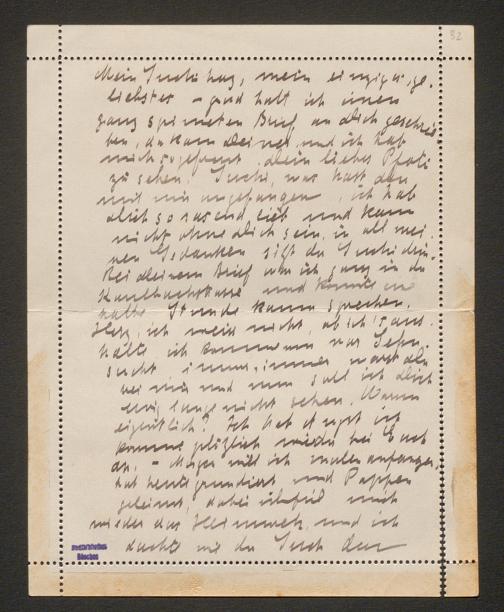 32
Mein Suchi hag, mein einziger, ge-
liebster – grad hatt ich einen
ganz spinneten Brief an dich geschrie-
ben, da kam deiner, und ich hab
mich so gefreut, dein liebes Pfoti
zu sehen. Suchi, was hast du
mit mir angefangen, ich hab
dich so rasend lieb und kann
nicht ohne dich sein, in all mei-
nen Gedanken sitzt du Suchi drin.
Bei deinem Brief war ich ganz in der
und konnte eine
halbe Stunde kaum sprechen.
Herz, ich weiss nicht, ob ich's aus-
halte, ich komm um vor Sehn-
sucht, immer, immer warst du
bei mir und nun soll ich dich
ewig lange nicht sehen. Warum
eigentlich? Ich hab Angst ich
komme plötzlich wieder bei Euch
an. – Morgen will ich malen anfangen,
hab heute grundiert und Pappen
geleimt, dabei überfiel mich
wieder das Heimweh, und ich
dachte mir du
München